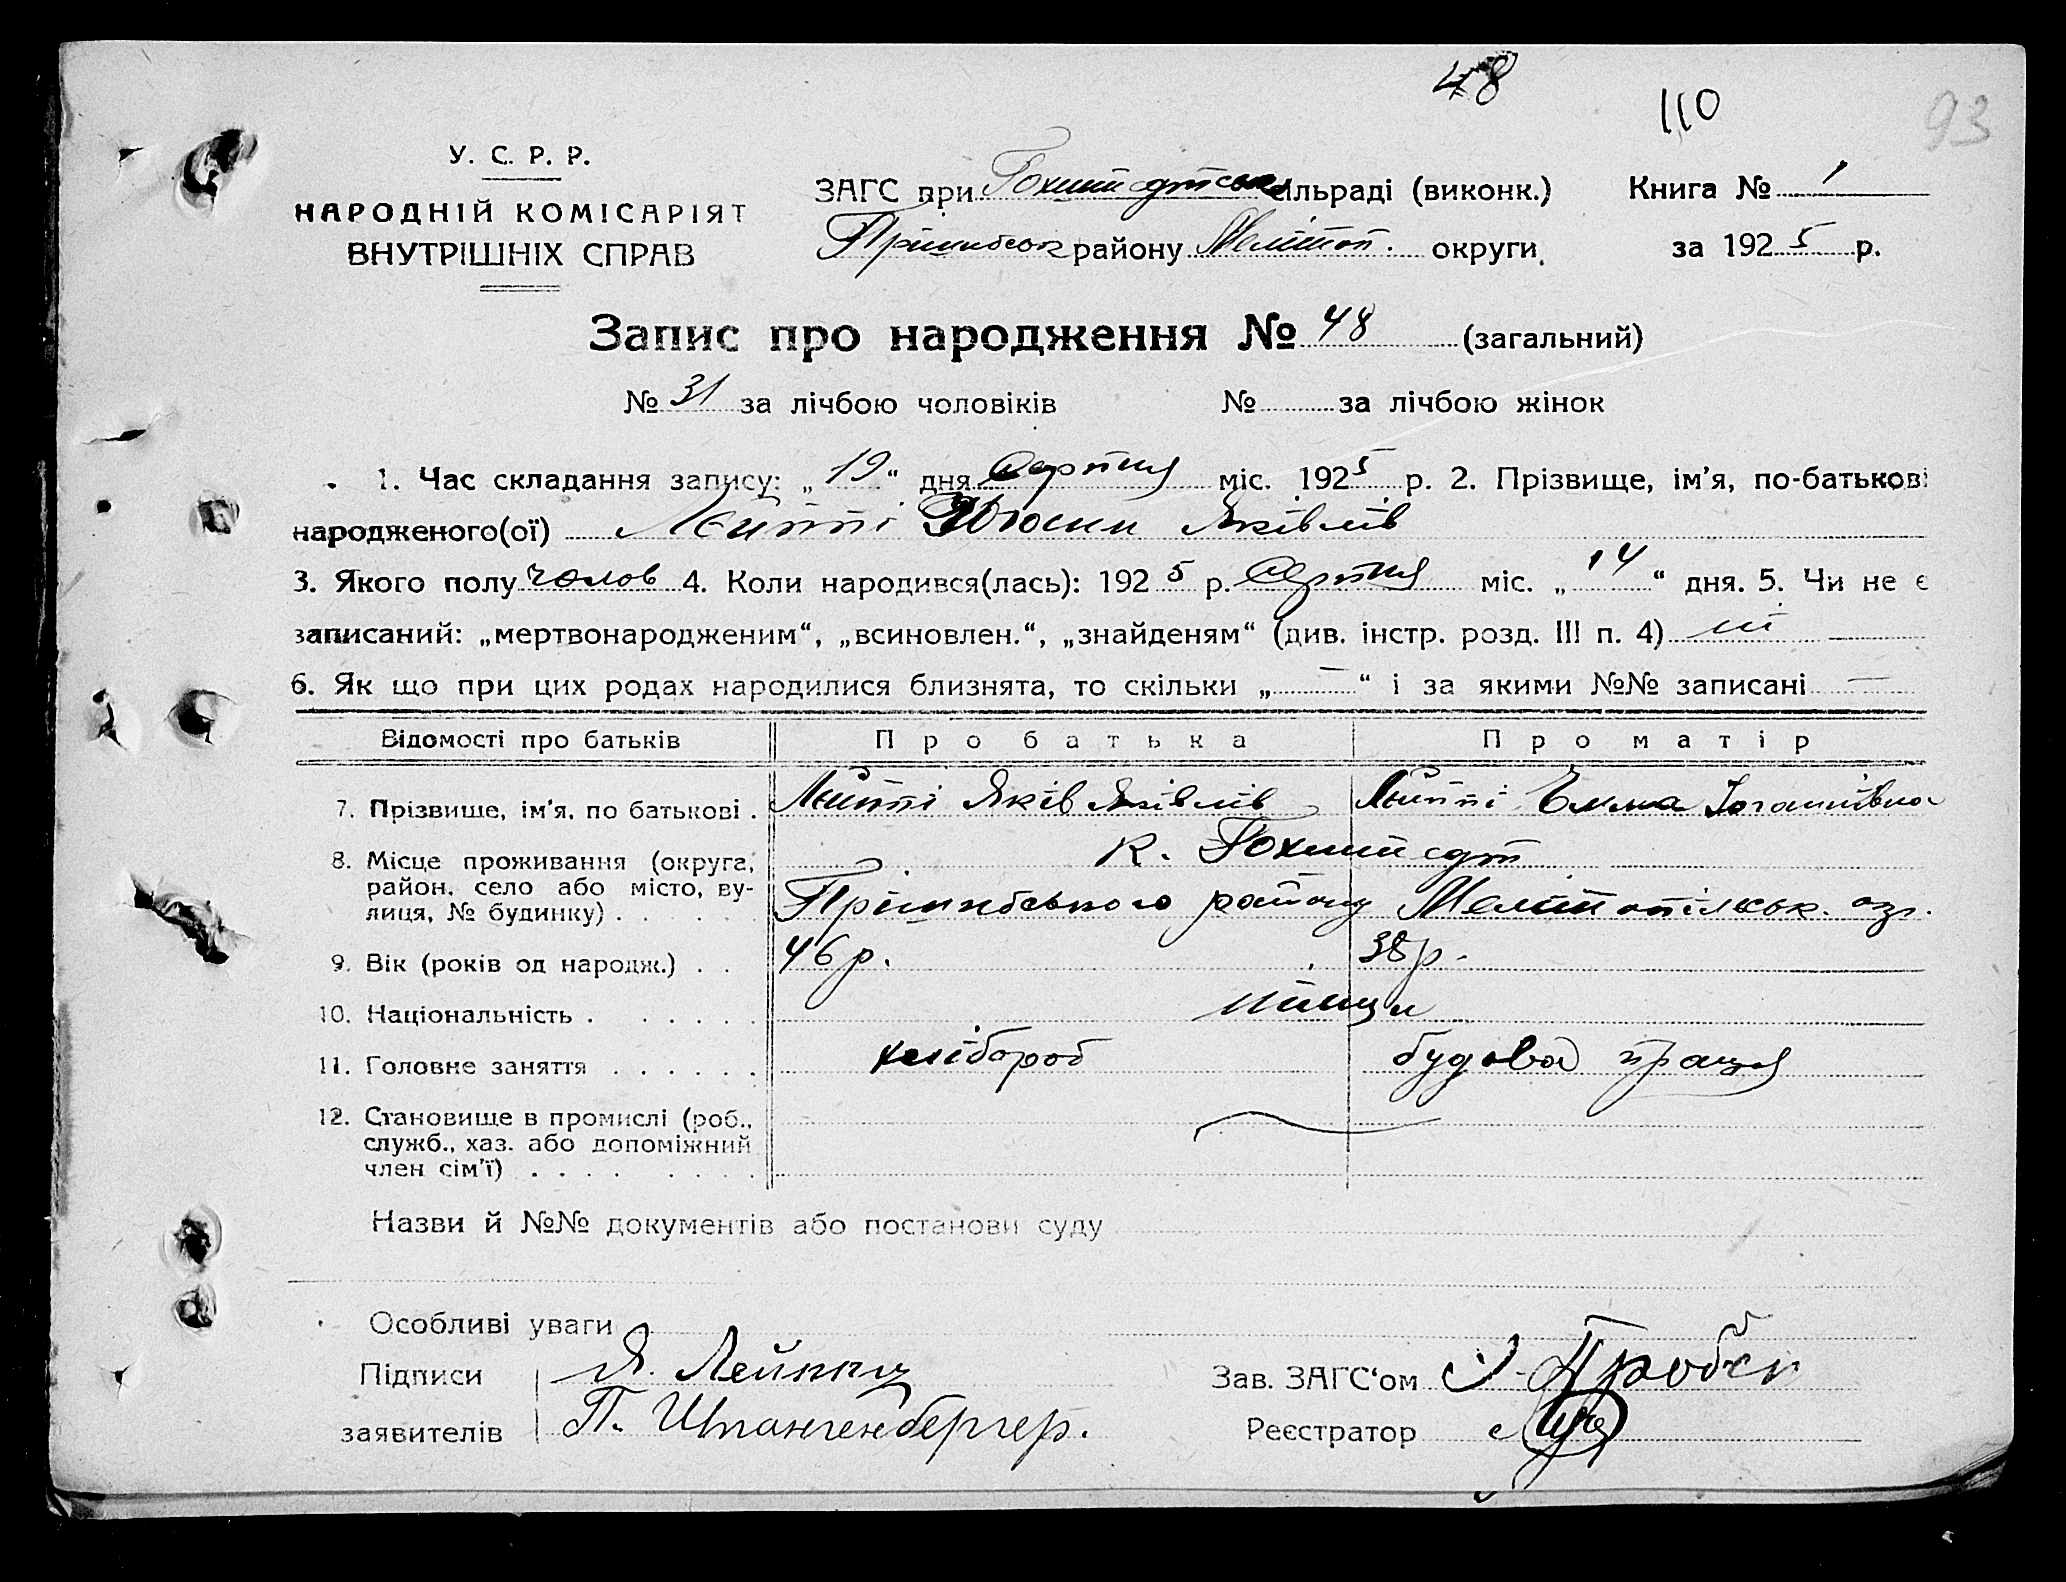 48
110
93
У. С. Р. Р.
НАРОДНІЙ КОМІСАРІЯТ
ВНУТРІШНІХ СПРАВ
ЗАГС при Гохштедтськ сільраді (виконк.) Книга № 1
Пришибськ району Мелітоп. округи, за 1925 р.
Запис про народження № 48 (загальний)
№ 31 за лічбою чоловіків № за лічбою жінок
1. Час складання запису: „19“ дня серпня міс. 1925 р. 2. Прізвище, ім'я, по-батькові
народженого(ої) Лейппі Яківлів
3. Якого полу чолов 4. Коли народився(лась): 1925 р. серпня міс. „14“ дня. 5. Чи не є
записаний: „мертвонародженим“, „всиновлен.“, „знайденям“ (див. інстр. розд. III п. 4) ні
6. Як що при цих родах народилися близнята, то скільки „—“ і за якими №№ записані —
Відомості про батьків Про батька Про матір
7. Прізвище, ім'я, по батькові . Лейппі Яків Яківлів Лейппі Емма Іоганівна
8. Місце проживання (округа, район, село або місто, вулиця, № будинку) . к. Гохштедт
Пришибського району Мелітопільськ. окр.
9. Вік (років од народж.) . . 46 р. 38 р.
10. Національність . німци
11. Головне заняття хлібороб будова праця
12. Становище в промислі (роб., служб., хаз. або допоміжний член сім'ї)
Назви й №№ документів або постанови суду
Особливі уваги
Підписи Я. Лейппи Зав. ЗАГС‘ом
заявителів П. Штангенбергер. Реєстратор